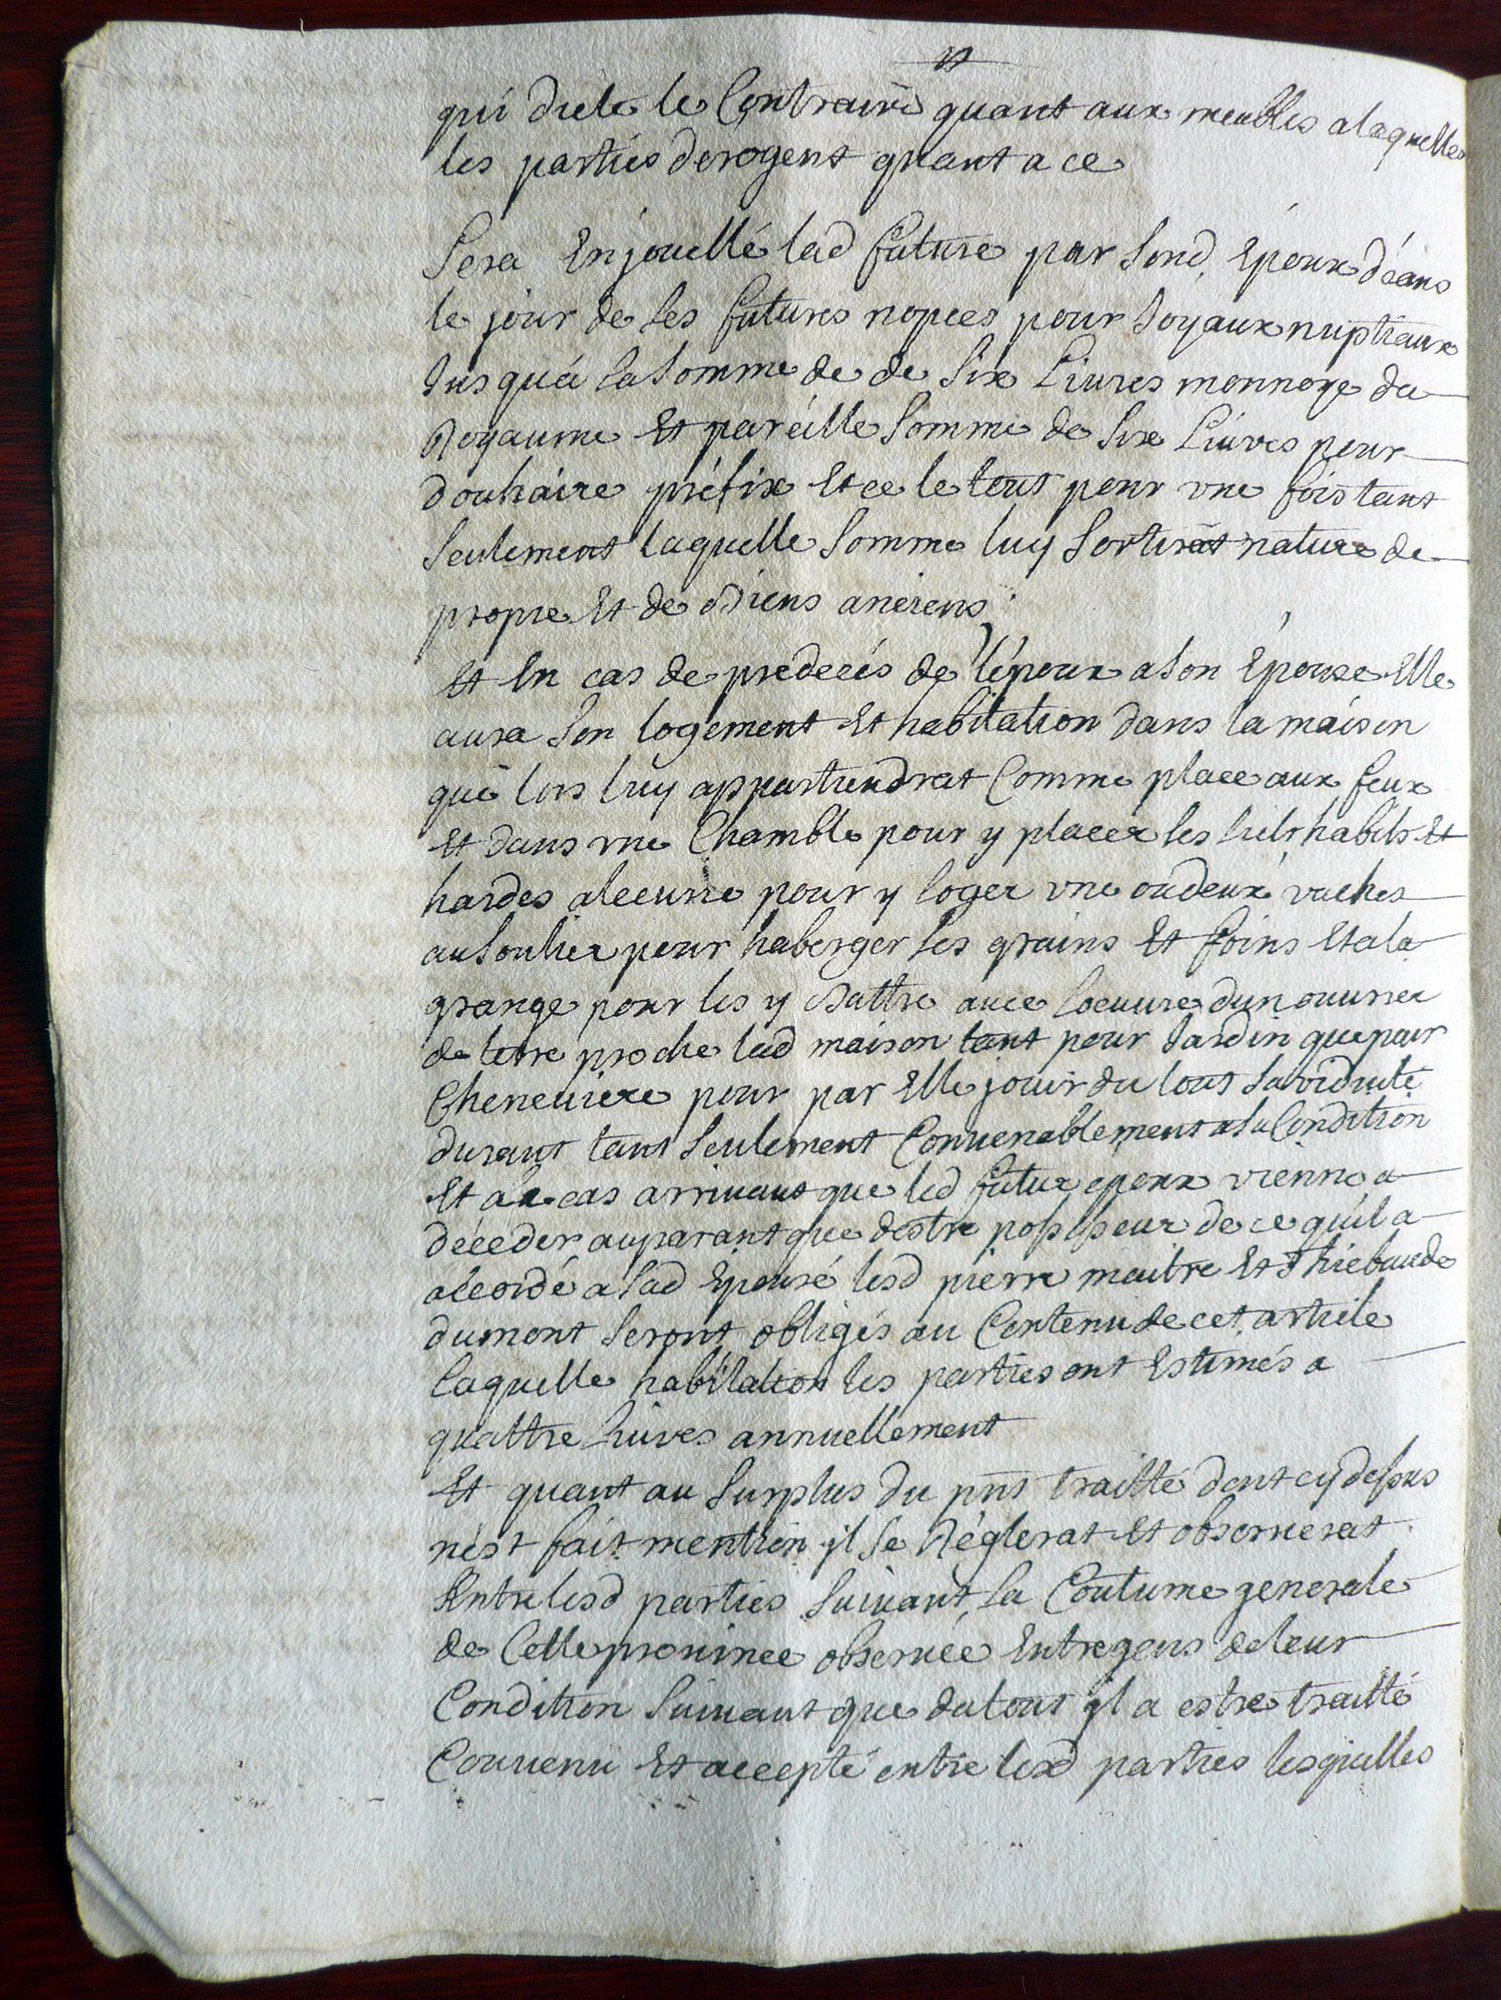 qui dicte le Contraire quant aux meubles a laquelle
les parties derogent quant a ce
Sera Enjouellé lad future par sond. Epoux d'éans
le jour de ses futures nopces pour Joyaux nuptiaux
Jusqu'á la somme de de six Livres monnoye du
Royaume Et pareille somme de six Livres pour
douhaire préfix Et ce le tout pour vne fois tant
seulement laquelle somme luy sortirat nature de
propre Et de Biens anciens,
Et En cas de predecés de l'époux a son Epouse Elle
aura son logement Et habitation dans la maison
qui lors luy appartiendrat Comme place aux feux
Et dans vne Chambre pour y placer ses licts habits Et
hardes alecurie pour y loger vne ou deux vaches
au soulier pour haberger ses grains Et foins Et a la
grange pour les y Battre avec loeuure dun ouurier
de terre proche lad maison tant pour Jardin que pour
Cheneuiere pour par Elle jouir du tout sa viduité
durant tant seulement Conuenablement a sa Condition
Et au cas arriuant que led futur epoux vienne a
déceder auparant que destre possesseur de ce qu'il a
accordé a sad Epouse lesd pierre maitre Et Thiebaude
dumont seront obligés au Contenu de cet article
laquelle habitation les parties ont Estimés a
quattre Liures annuellement
Et quant au surplus du pnt traitté dont cy dessus
n'est fait mention il se Réglerat Et obseruerat
Entre lesd parties suiuant la Coutume generale
de Cette prouince obseruée Entre gens de leur
Condition suiuant que du tout il a estre traitté
Conuenu Et accepté entre lesd parties lesquelles